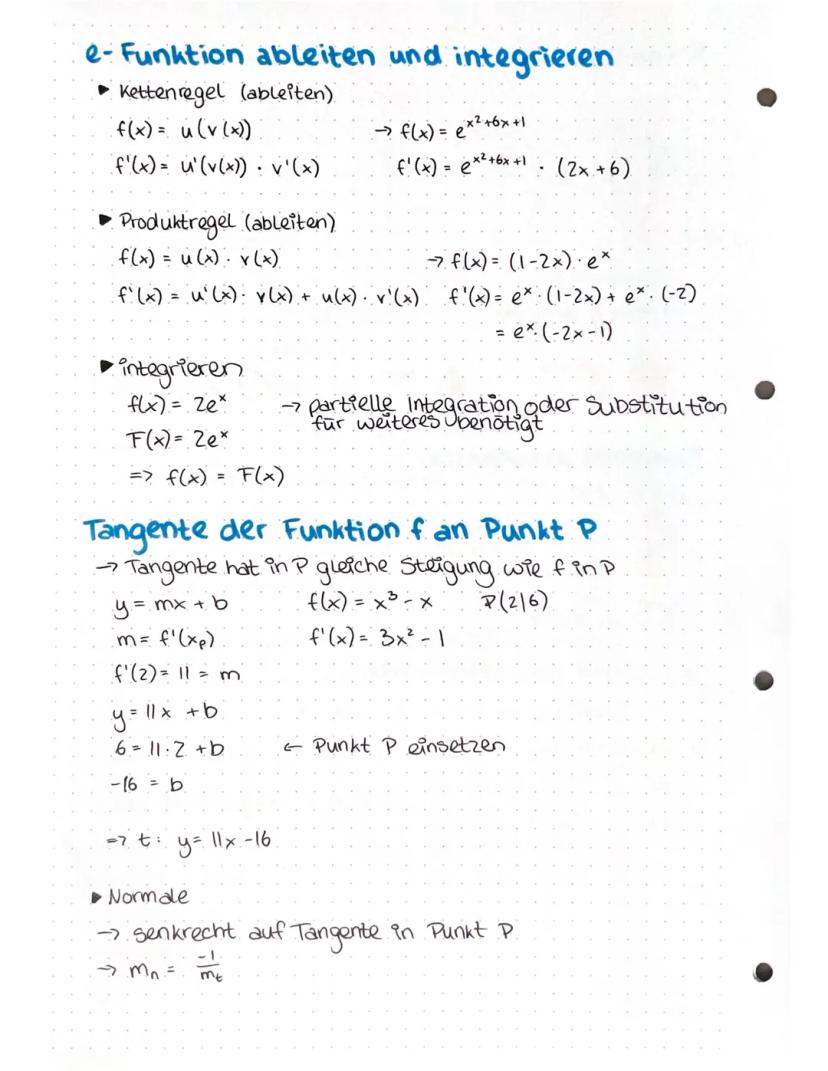 e-Funktion ableiten und integrieren
▸ Kettenregel (ableiten)
f(x) = u(v(x)) → f(x) = e^(x²+6x+1)
f'(x) = u'(v(x)) · v'(x) f'(x) = e^(x²+6x+1) · (2x+6)
▸ Produktregel (ableiten)
f(x) = u(x) · v(x) → f(x) = (1-2x) · e^x
f'(x) = u'(x) · v(x) + u(x) · v'(x) f'(x) = e^x · (1-2x) + e^x · (-2)
= e^x · (-2x-1)
▸ integrieren
f(x) = 2e^x → partielle Integration oder Substitution
für weiteres benötigt
F(x) = 2e^x
=> f(x) = F(x)
Tangente der Funktion f an Punkt P
→ Tangente hat in P gleiche Steigung wie f in P
y = mx + b f(x) = x³ - x P(2|6)
m = f'(x_P) f'(x) = 3x² - 1
f'(2) = 11 = m
y = 11x + b
6 = 11·2 + b ← Punkt P einsetzen
-16 = b
=> t: y = 11x - 16
▸ Normale
→ senkrecht auf Tangente in Punkt P
→ m_n = -1/m_t